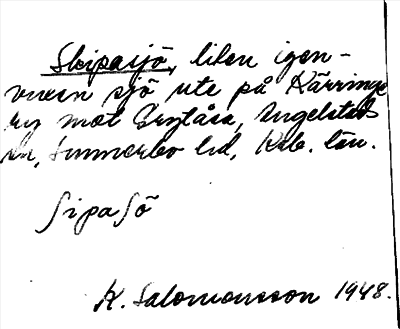 Skipasjö, liten igen-
vuxen sjö ute på Kärringe
ry mot Grytåsa, Angelstads
sn, Sunnerbo hd, Krb. län.
SipaSö
K. Salomonsson 1948.